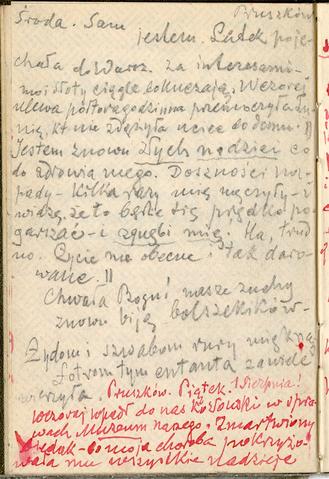 Pruszków
Środa. Sam
jestem. Ładek poje-
chała do Warsz. za interesami-
moi złoty ciągle dokuczają. Wczoraj
ulewa półtoragodzinna przemoczyła
mię, kt nie zdążyła uciec do domu. ||
Jestem znowu złych nadziei co
do zdrowia mego. Duszności na-
pady - kilka razy mię męczyły - u
ważę, że to będzie się prędko po
garszać - i zgnębi mię. Ha, trud
no. Życie me obecne i tak daro-
wane. ||
Chwała Bogu! nasze zuchy
znowu biją bolszewików -
Żydom i szwabom rury mięk
Łotrom tym entanta zanadto
wierzyła.
Pruszków. Piątek. 1 Sierpnia!
wczoraj wpadł do nas Kosłowski w spra-
wach Muzeum naszego. Zmartwiony
jednak - bo moja choroba pokrzyżo-
wała mu wszystkie nadzieje